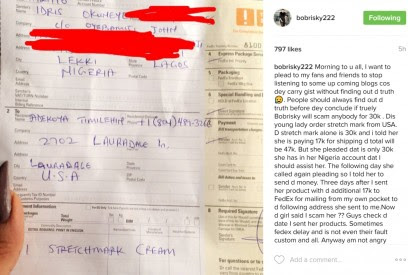 IDRIS OKUNEYE
c/o
LEKKI LAGOS
NIGERIA
4 Express
5 Packaging
6 Special Handling
7 Payment
ADEKOYA TIMILEHIN
2702 LAURADALE ln.
LAURADALE
U.S.A
8
1 STRETCHMARK CREAM
bobrisky222
Following
797 likes
bobrisky222 Morning to u all, I want to
pled to my fans and friends to stop
listening to some up coming blogs cos
dey carry gist without finding out d truth
😂. People should always find out d
truth before dey conclude if truely
Bobrisky will scam anybody for 30k . Dis
young lady order stretch mark from USA.
D stretch mark alone is 30k and i told her
she is paying 17k for shipping d total will
be 47k. But she pleaded dat is only 30k
she has in her Nigeria account dat I
should assist her. The following day she
called again pleading so I told her to
send d money. Three days after I sent
her product with d additional 17k to
FedEx for mailing from my own pocket to
d following address she sent to me.Now
d girl said I scam her ?? Guys check d
date I sent her products. Sometimes
fedex deley and is not even their fault
custom and all. Anyway am not angry
Add a comment...